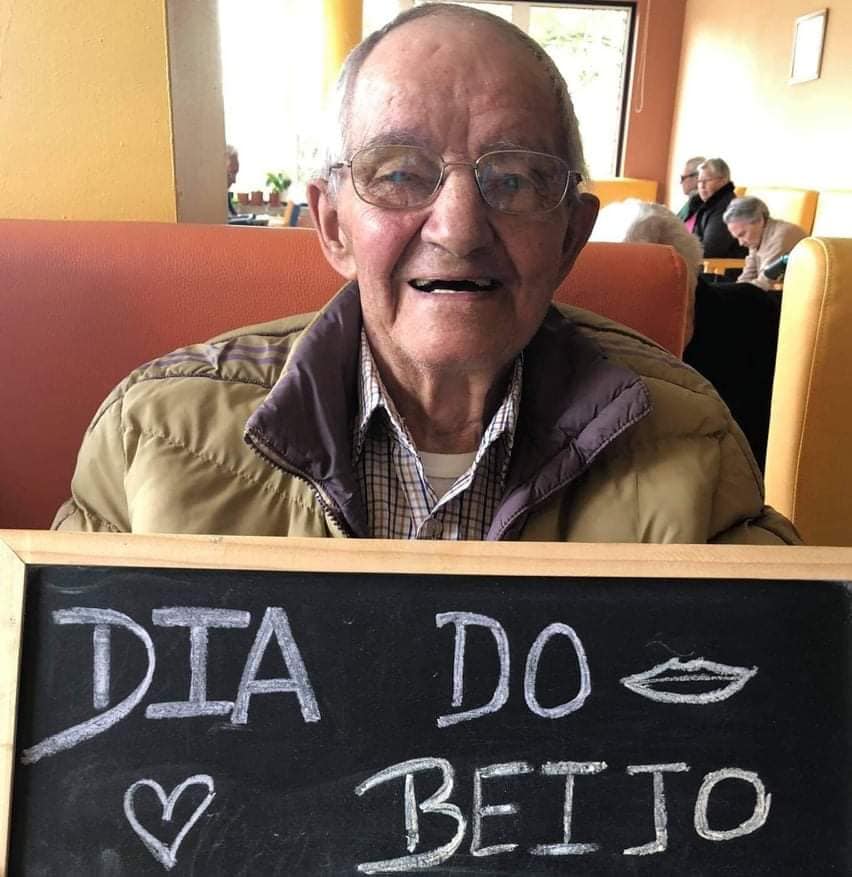 DIA DO
BEIJO